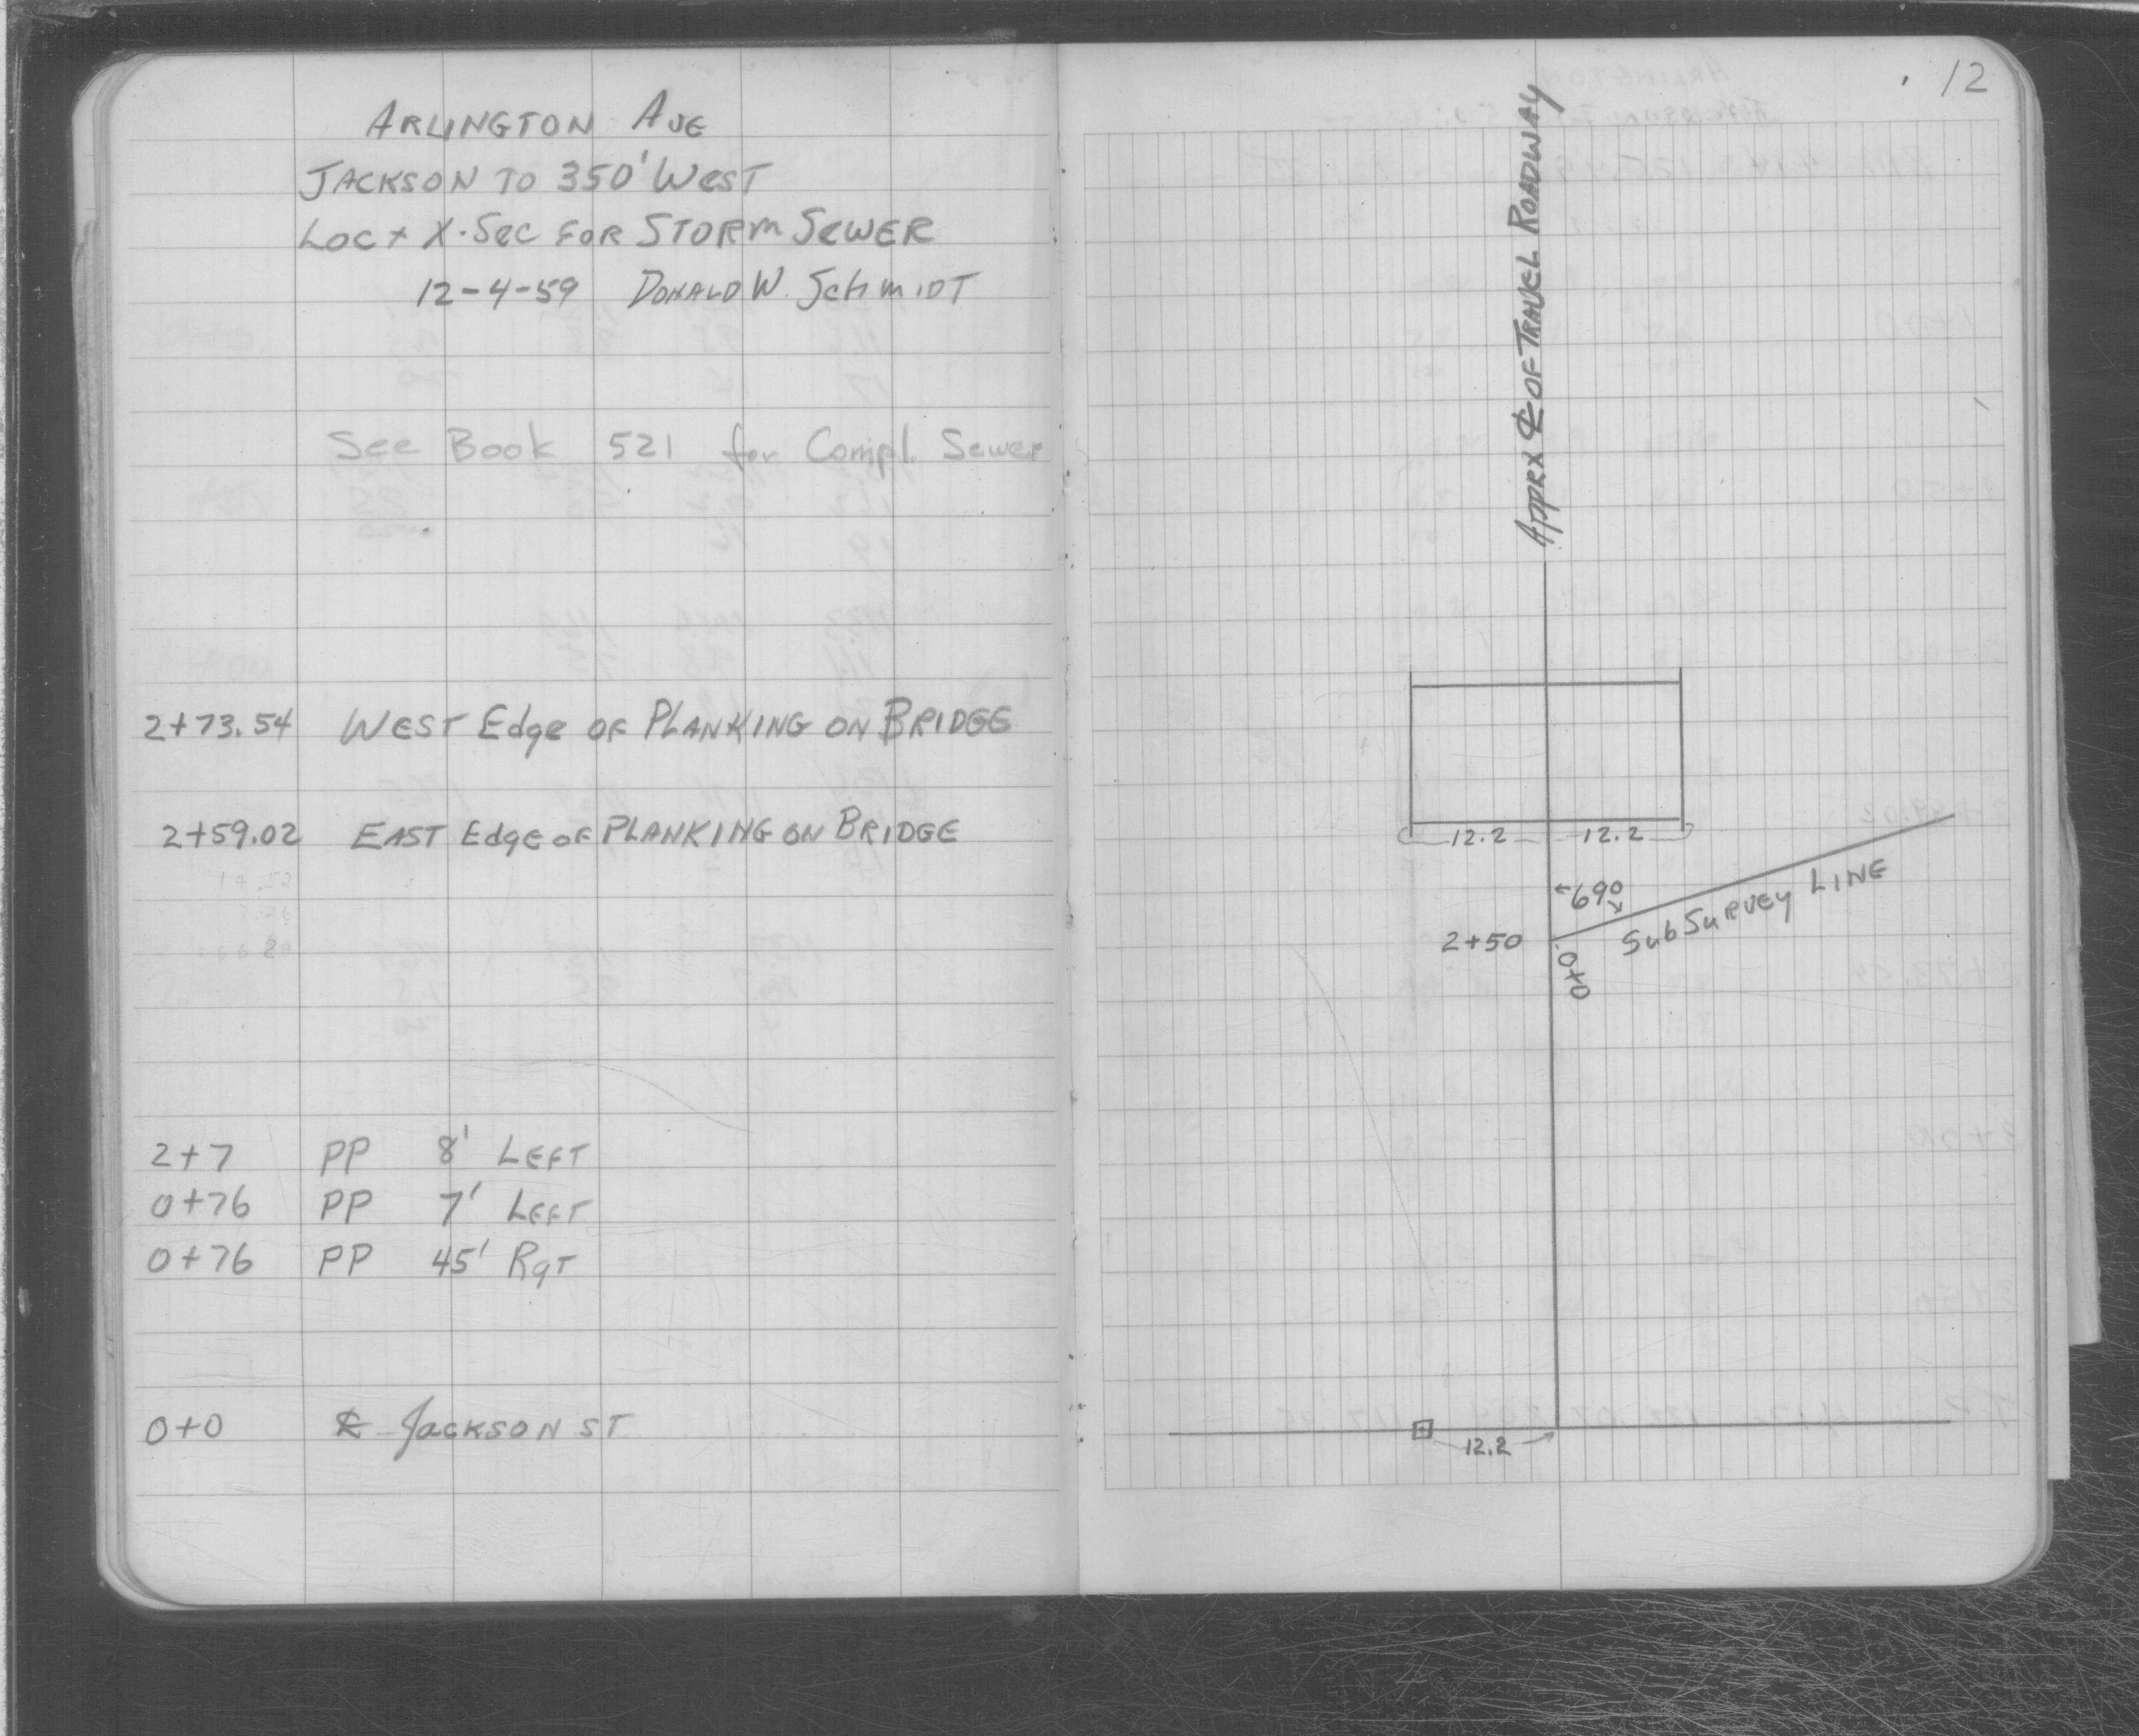 ARLINGTON AVE
JACKSON TO 350' WEST
LOC + X-SEC FOR STORM SEWER
12-4-59 DONALD W. SCHMIDT
See Book 521 for Compl. Sewer
2+73.54 WEST Edge OF PLANKING ON BRIDGE
2+59.02 EAST Edge OF PLANKING ON BRIDGE
14.52
7.26
2+7 PP 8' LEFT
0+76 PP 7' LEFT
0+76 PP 45' RgT
0+0 ℄ JACKSON ST
12
APPRX ℄ OF TRAVEL ROADWAY
12.2 12.2
69°
SubSURVEY LINE
2+50
0+0
12.2